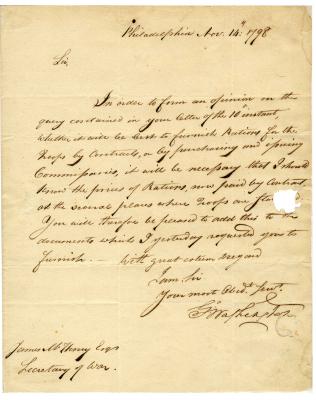 Philadelphia Nov. 14th 1798
Sir,
In order to form an opinion on the
query contained in your letter of the 10th instant,
whether it will be best to furnish Rations for the
Troops by Contracts, or by purchasing and issuing
Commissaries, it will be necessary that I should
know the prices of Rations, now paid by Contract
at the several places where Troops are
You will therefore be pleased to add this to the
documents which I yesterday requested you to
furnish. With great esteem & regard
I am Sir
Your most Obedt. Servt.
Go. Washington
James McHenry Esqr
Secretary of War.